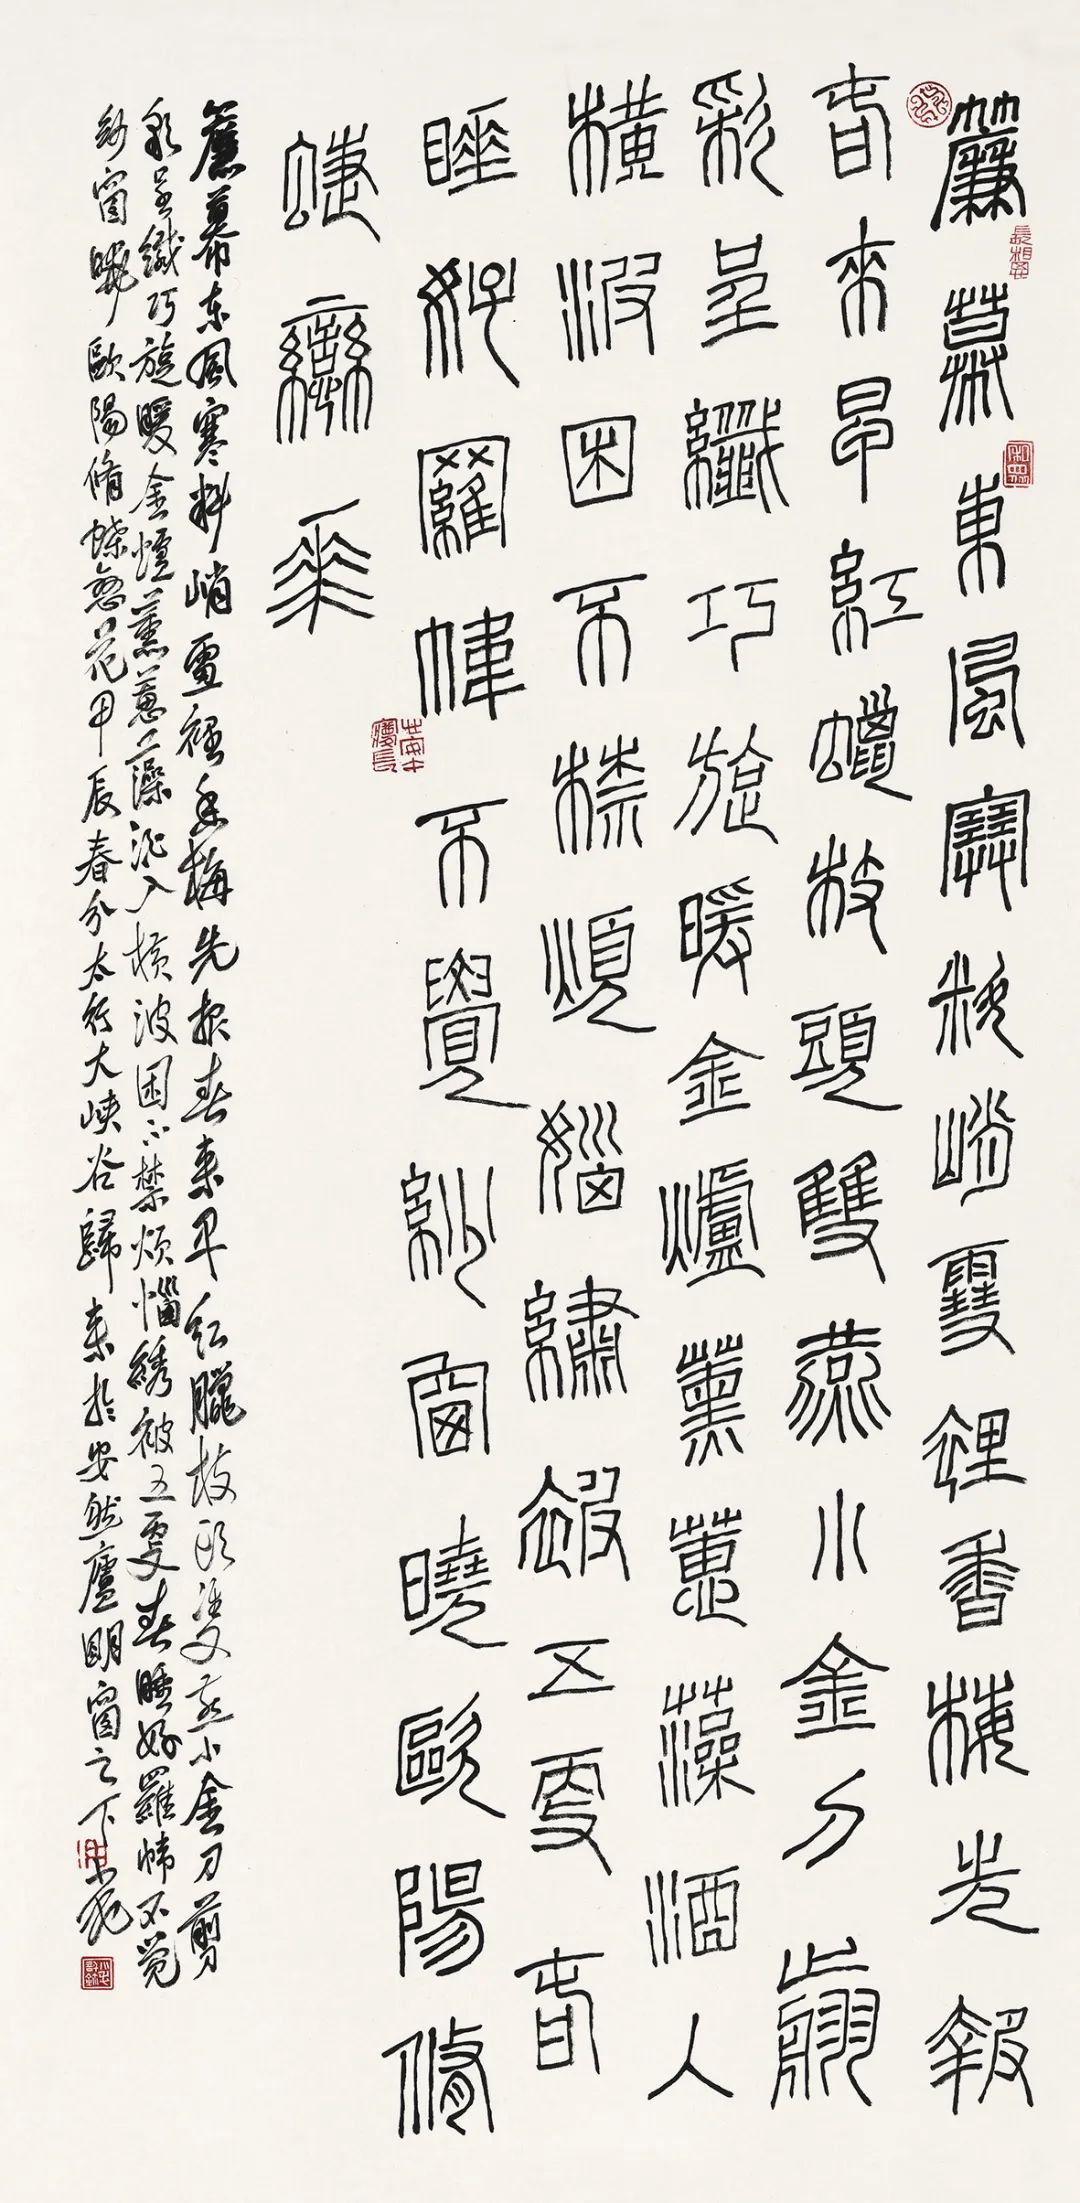 簾幕東風寒料峭雪裡香梅先報
春來早紅蠟枝頭雙燕小金刀剪
彩呈纖巧旋暖金爐薰蕙藻酒入
橫波困不禁煩惱繡被五更春
睡好羅幃不覺紗窗曉歐陽脩
蜨戀華
簾幕东風寒料峭雪裡香梅先报春来早红臘枝头双燕小金刀剪
彩呈纖巧旋暖金爐薰蕙藻酒入横波困不禁烦惱綉被五更春睡好羅幃不觉
紗窗曉歐陽脩蝶戀花甲辰春分太行大峡谷歸来於安然廬明窗之下